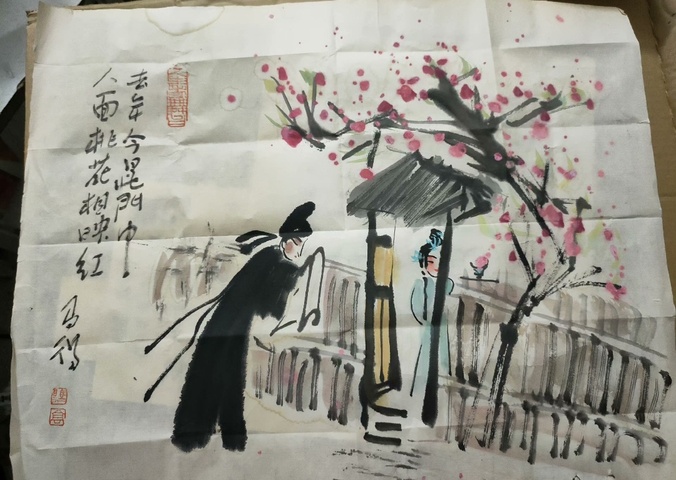 去年今日此门中
人面桃花相映红
马得